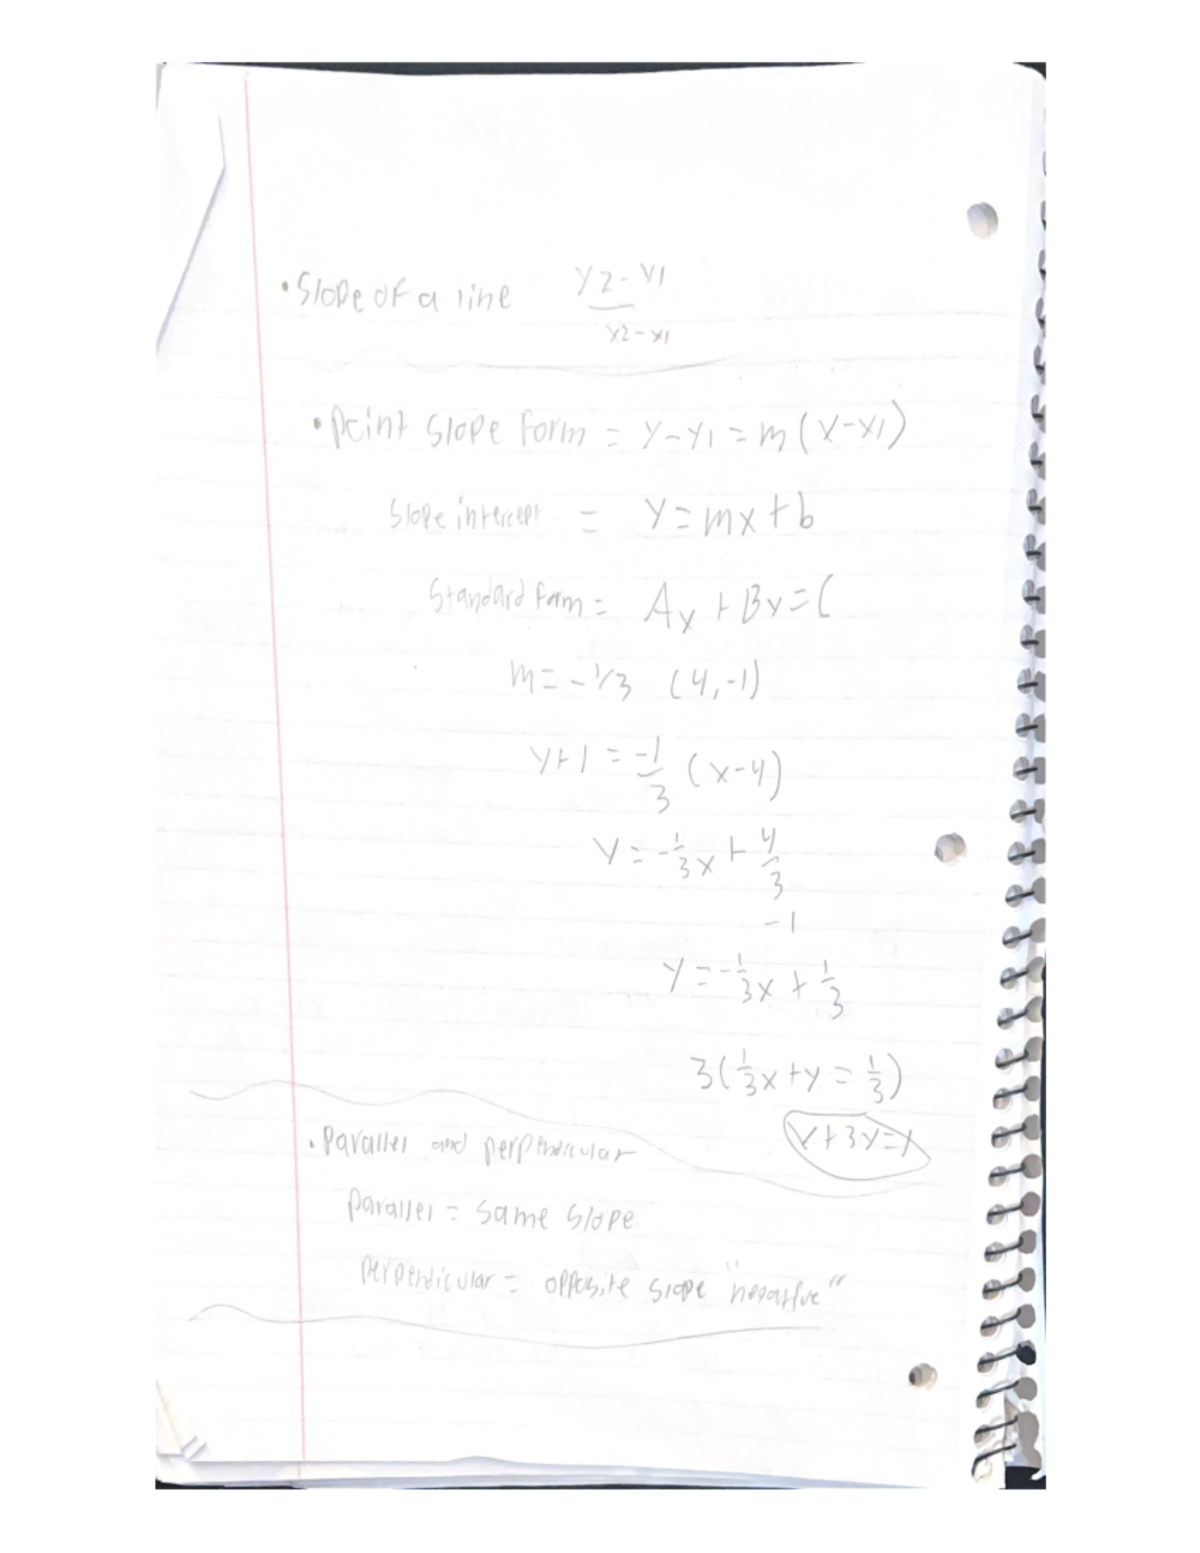 • Slope of a line y2-y1
x2-x1
• Point slope form = y-y1 = m(x-x1)
Slope intercept = y=mx+b
Standard form = Ax + By = C
m = -1/3 (4,-1)
y+1 = -1/3 (x-4)
y = -1/3x + 4/3
-1
y = -1/3x + 1/3
3(1/3x+y = 1/3)
x+3y=1
• Parallel and perpendicular
parallel = same slope
perpendicular = opposite slope "negative"